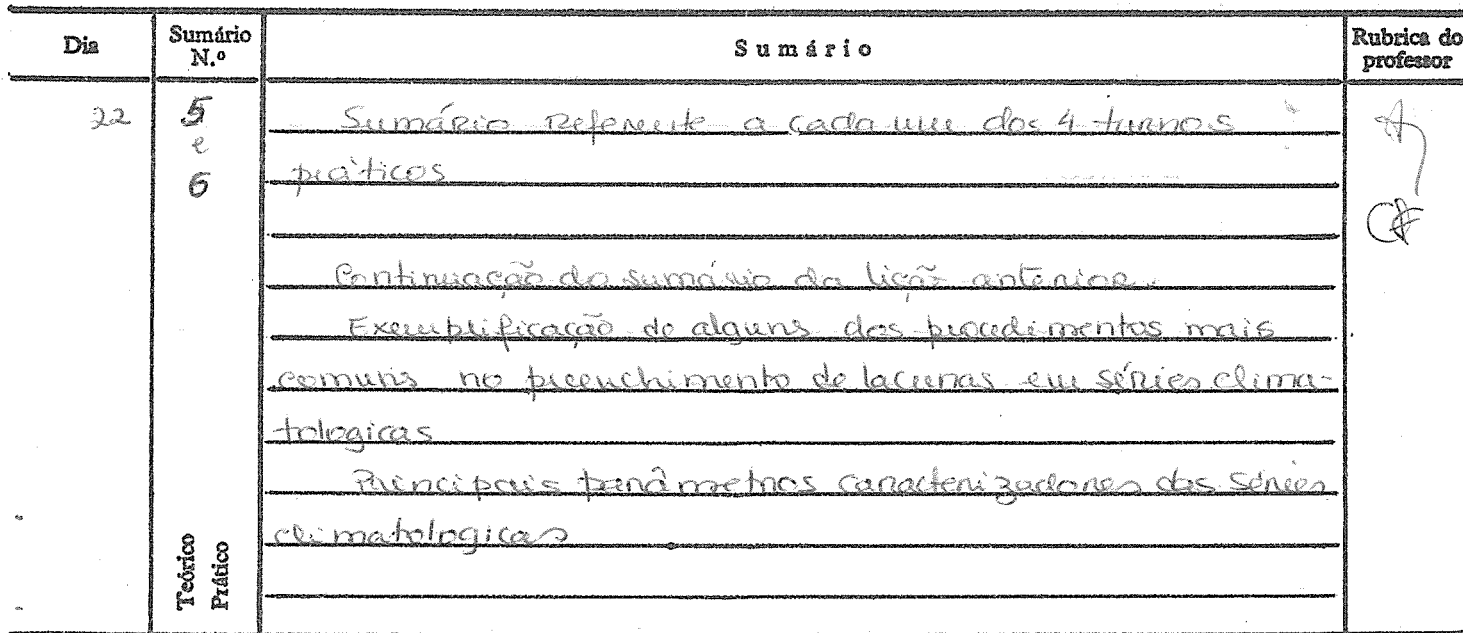 Dia Sumário N.º Sumário Rubrica do professor
22 5 e 6 Sumário referente a cada um dos 4 turnos
práticos
Continuação do sumário da lição anterior.
Exemplificação de alguns dos procedimentos mais
comuns no preenchimento de lacunas em séries clima-
tologicas
Principais parâmetros caracterizadores das séries
climatologicas
Teórico
Prático